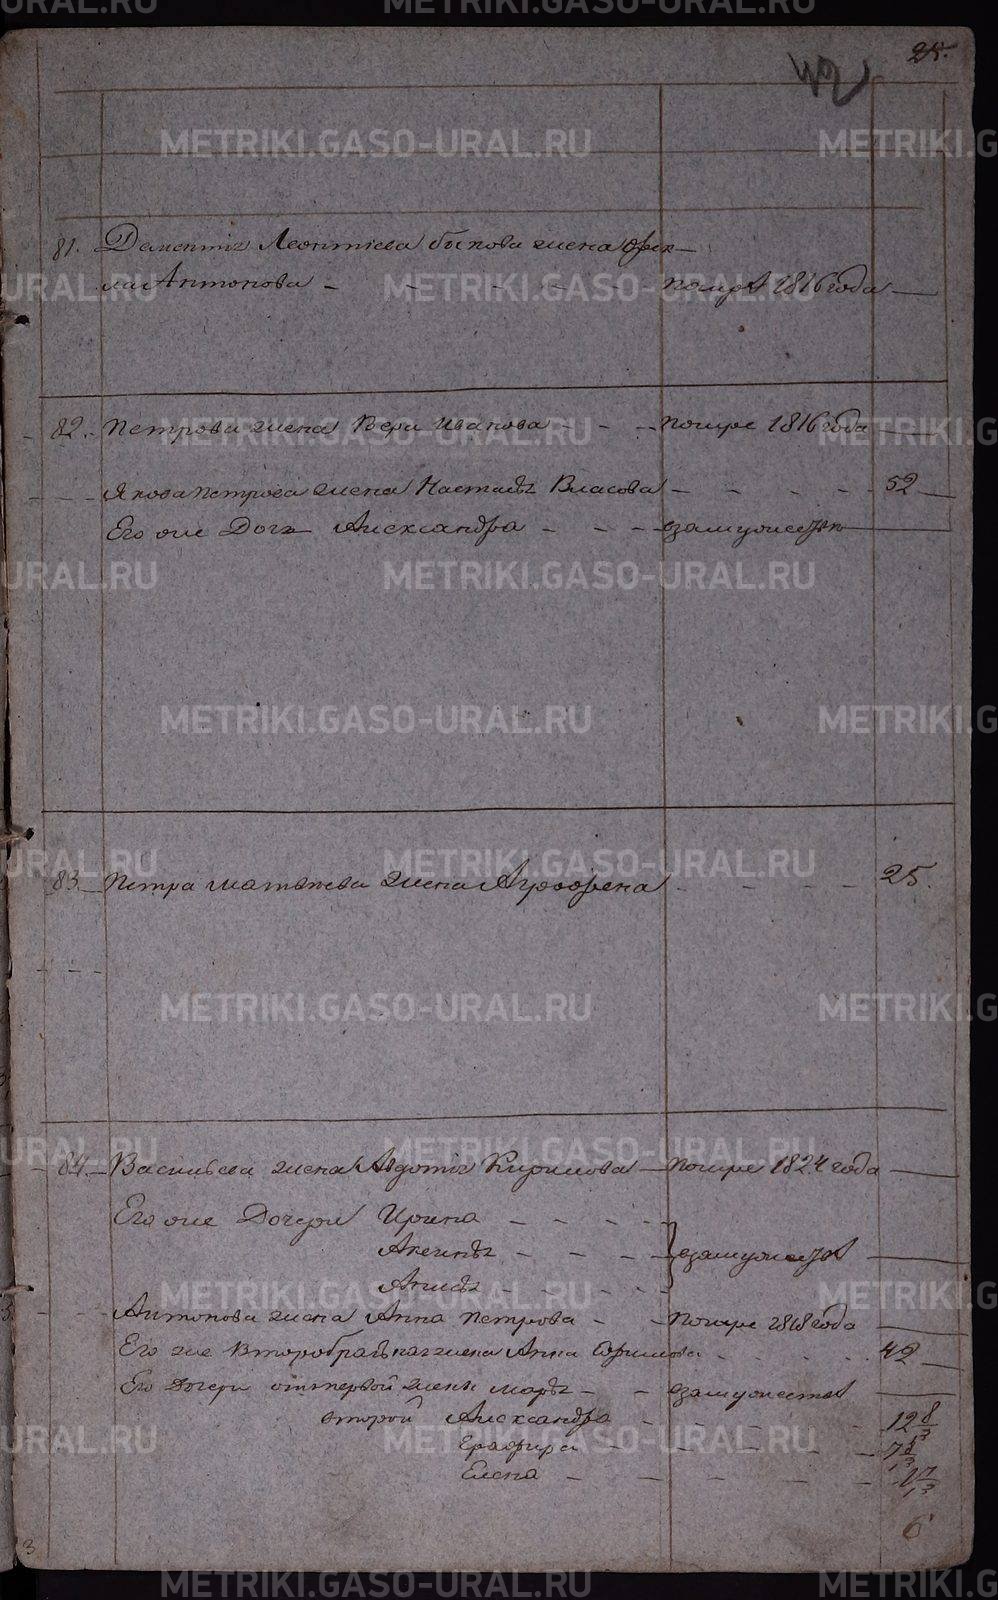 25.
42
81. Дементия Леонтиева быкова жена Фек-
ла Антонова - - - - - помре 1816 года —
82. Петрова жена Вера Иванова - - - помре 1816 года —
Якова петрова жена Настасья Власова - - - - - 52 —
Его же Дочь Александра - - - в замужестве —
83. Петра матвеева жена Аграфена - - - - - 25.
84. Васильева жена Авдотья Кирилова — помре 1824 года —
Его же Дочери Ирина - - - -
Аксинья - - - - в замужестве —
Анисья - - - - -
Антонова жена Анна петрова - - помре 1818 года —
Его же Второбрачная жена Анна - - - - 42 —
Его Дочери от первой жены марья - - в замужестве —
второй Александра - - - - - 12
- - - - - 7
Елена - - - - - -
6
3
METRIKI.GASO-URAL.RU